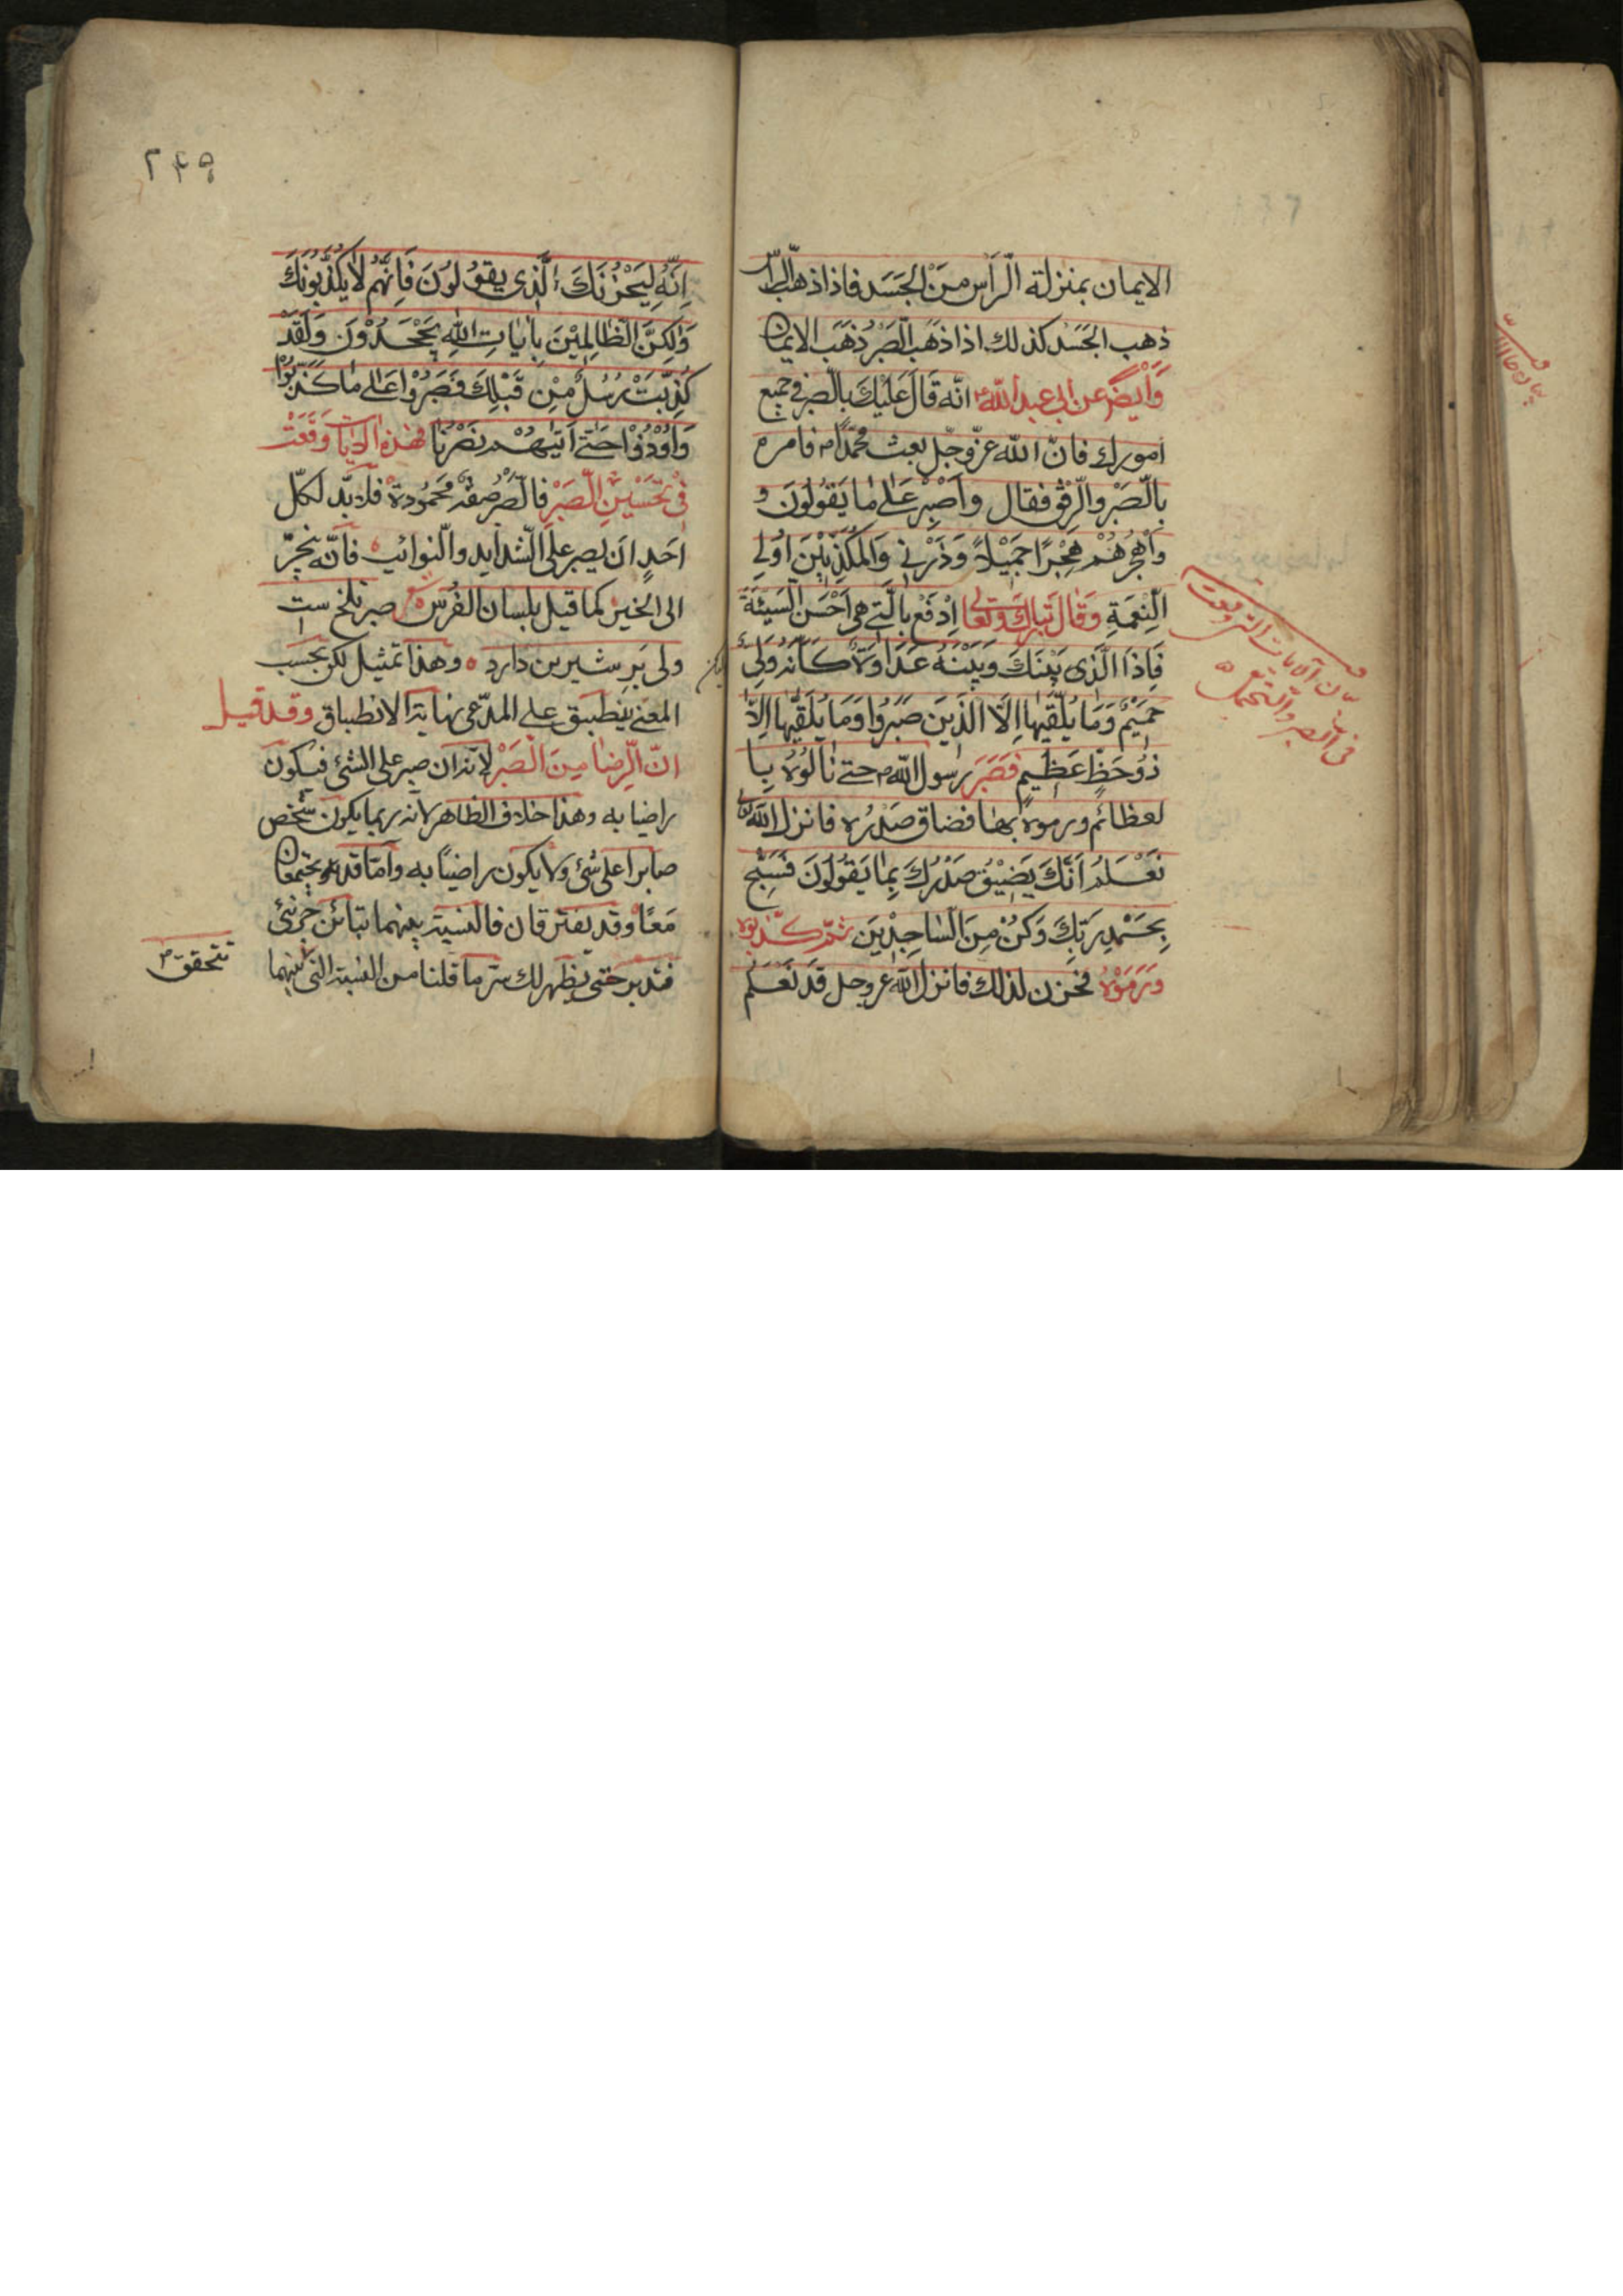 الايمان بمنزلة الرّأس مِنَ الجَسَد فاذا ذهب الرّأس
ذهب الجَسَد كذلك اذا ذَهَب الصّبْرُ ذَهَب الايمان
وَايضًا عن ابي عبد الله ع انّه قَالَ عَلَيْكَ بالصّبر في جميع
امورك فانّ الله عزّ وجلّ بعث محمّدًا ص فامره
بالصّبْر والرّفْق فقال وَاصْبِرْ عَلى ما يَقُولُونَ و
وَاهْجُرْهُمْ هَجْرًا جَمِيْلاً وَذَرْنِي وَالمُكَذِّبِيْنَ اُولِي
النّعْمَةِ وَقَالَ تَبَارَكَ وَتَعَالى اِدْفَعْ بِالَّتي هِيَ اَحْسَن السَّيِّئَةَ
فَاِذَا الَّذِي بَيْنَكَ وَبَيْنَهُ عَدَاوَةٌ كَاَنَّهُ وَلِيٌّ
حَمِيْمٌ وَمَا يُلَقّيها اِلَّا الَّذِينَ صَبَرُوا وَمَا يُلَقّيها اِلَّا
ذُوْ حَظٍّ عَظِيمٍ فَصَبَرَ رسول الله ص حتى نالُوهُ بِا
لعظائم ورموهُ بها فضاق صَدْرُه فانزل الله
نَعْلَمُ اَنَّكَ يَضِيْقُ صَدْرُكَ بِمَا يَقُولُونَ فَسَبِّحْ
بِحَمْدِ رَبِّكَ وَكُنْ مِنَ السَّاجِدِيْنَ ثمّ كذّبوه
وَرَمَوْهُ فحزن لذلك فانزل الله عز وجل قَدْ نَعْلَمُ
بيان آلايات التي وقعت
في الصبر والتحمل
۲۴۵
اِنَّهُ لِيَحْزُنُكَ الَّذي يقُولُوْنَ فَاِنَّهُم لا يُكَذِّبُونَكَ
وَلكِنَّ الظّالِمِيْنَ بِايَاتِ اللهِ يَجْحَدُوْنَ وَلَقَدْ
كُذِّبَتْ رُسُلٌ مِنْ قَبْلِكَ فَصَبَرُوْا عَلى ما كُذِّبُوْا
وَاُوْذُوْا حَتّى اَتيهُمْ نَصْرُنَا فهذه الايات وَقَعَتْ
فِي تَحْسِيْنِ الصّبْرِ فالصّبْرُ صِفَةٌ مَحْمُودَةٌ فلابدّ لكلّ
اَحَدٍ اَن يصبر على الشّدايد والنّوائب فانّه ينجرّ
الى الخير كما قيل بلسان الفُرْس ع صبر تلخ ست
ولى بَرِ شيرين دارد ه وهذا تمثيل لكن بحسب
المعنى ينطبق على المدّعى نهاية الانطباق وقد قيل
انّ الرّضا مِنَ الصّبْر لانه ان صبر على الشئ فيكون
راضيا به وهذا خلاف الظاهر لانه ربما يكون شخص
صابرا على شئ ولا يكون راضيًا به وامّا قد يجتمعان
مَعًا وقد يفترقان فالنسبة بينهما تبائن جزئي
فتدبر حتى يظهر لك سرّ ما قلنا من النسبة التي بينهما
تتحقق